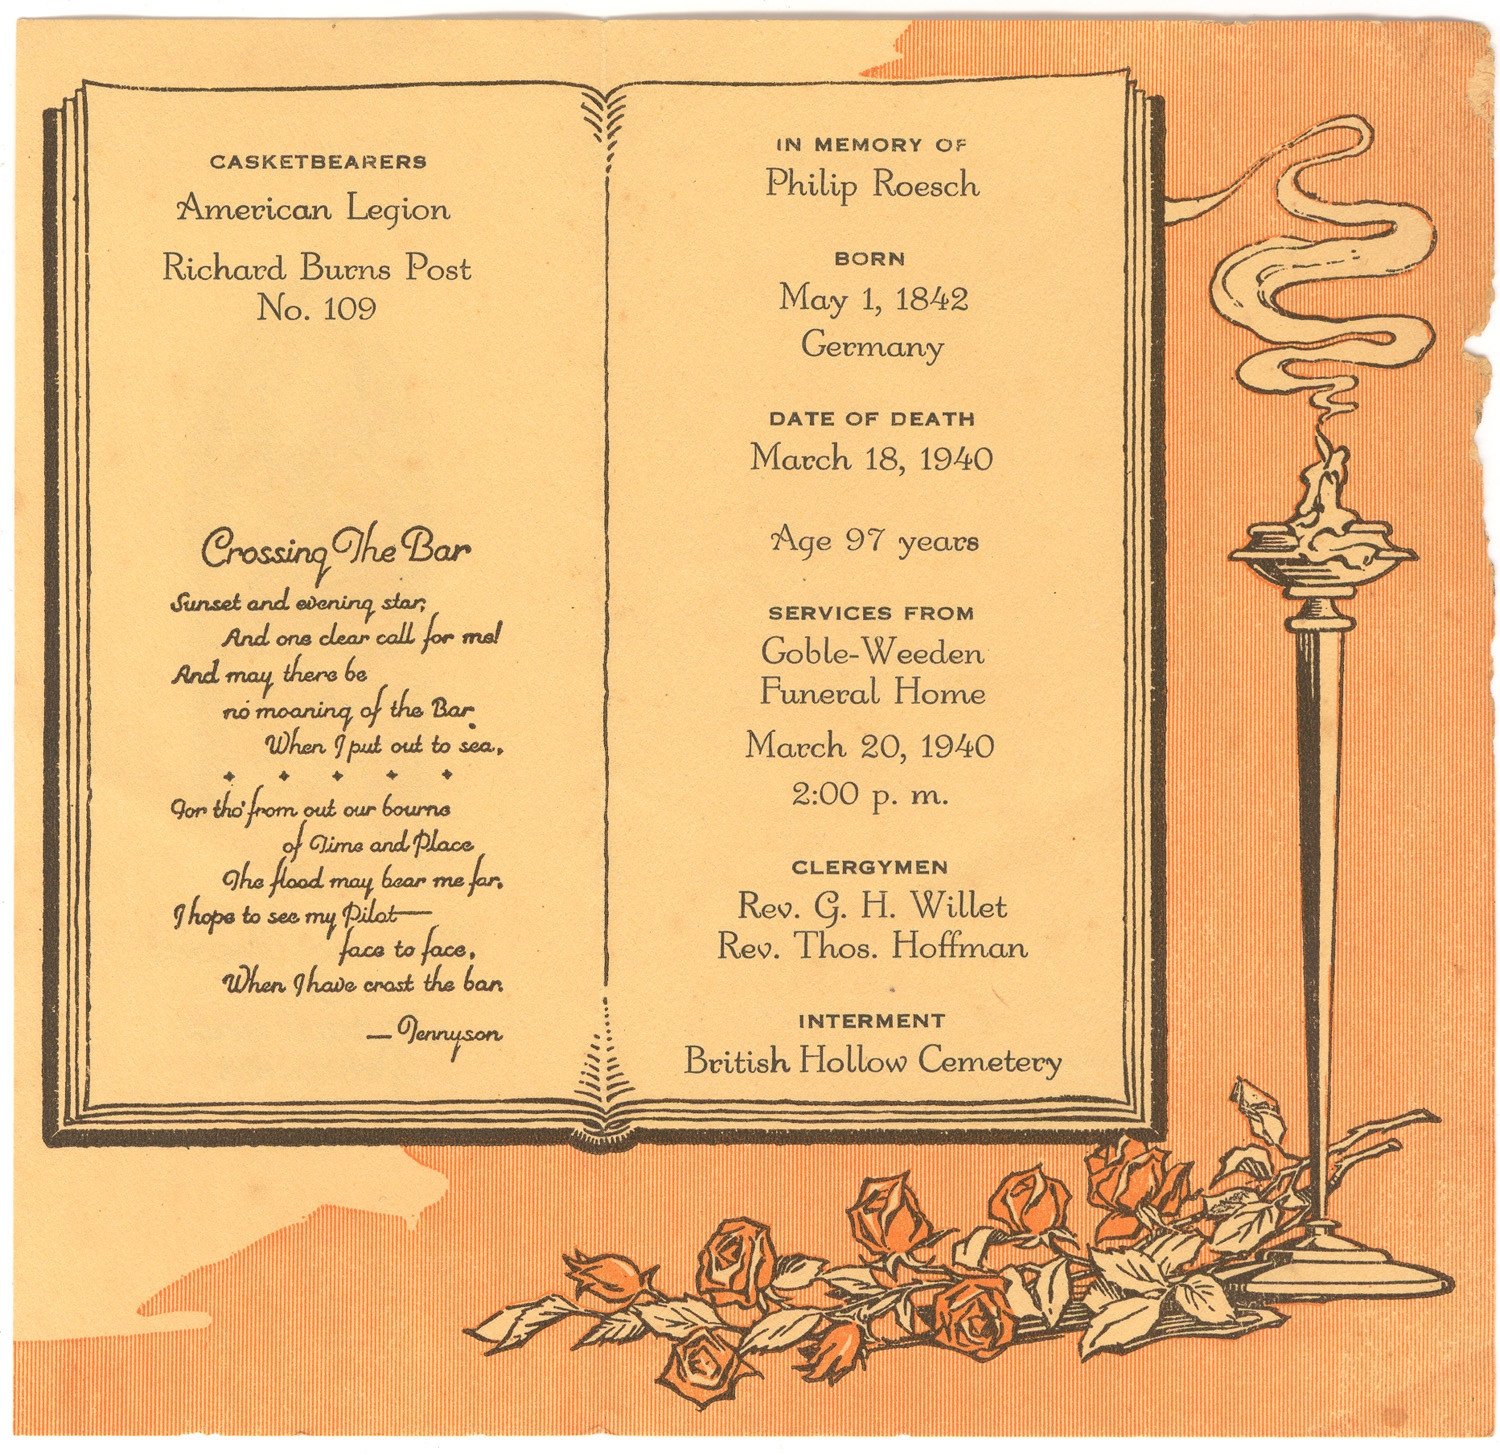 CASKETBEARERS
American Legion
Richard Burns Post
No. 109
Crossing The Bar
Sunset and evening star,
And one clear call for me!
And may there be
no moaning of the Bar
When I put out to sea,
For tho' from out our bourne
of Time and Place
The flood may bear me far,
I hope to see my Pilot—
face to face,
When I have crost the bar.
— Tennyson
IN MEMORY OF
Philip Roesch
BORN
May 1, 1842
Germany
DATE OF DEATH
March 18, 1940
Age 97 years
SERVICES FROM
Goble-Weeden
Funeral Home
March 20, 1940
2:00 p. m.
CLERGYMEN
Rev. G. H. Willet
Rev. Thos. Hoffman
INTERMENT
British Hollow Cemetery